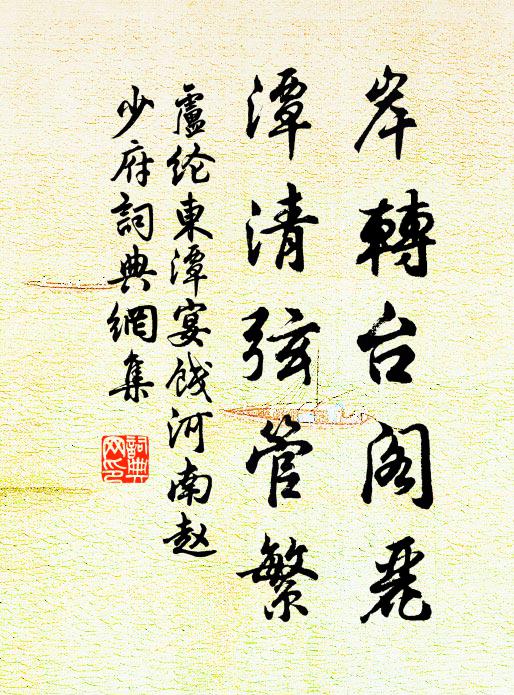 岸轉台阁麗
潭清弦管繁
盧纶東潭宴饯河南赵
少府詞典網集
詞典网印